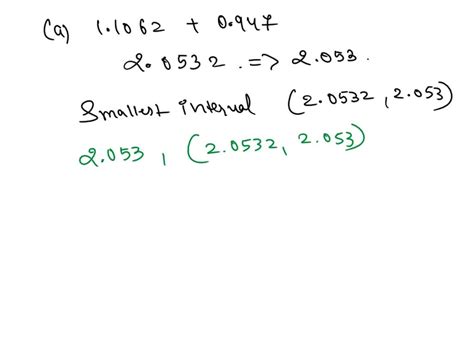 (a) 1.1062 + 0.947
2.0532 => 2.053.
Smallest interval (2.0532, 2.053)
2.053, (2.0532, 2.053)